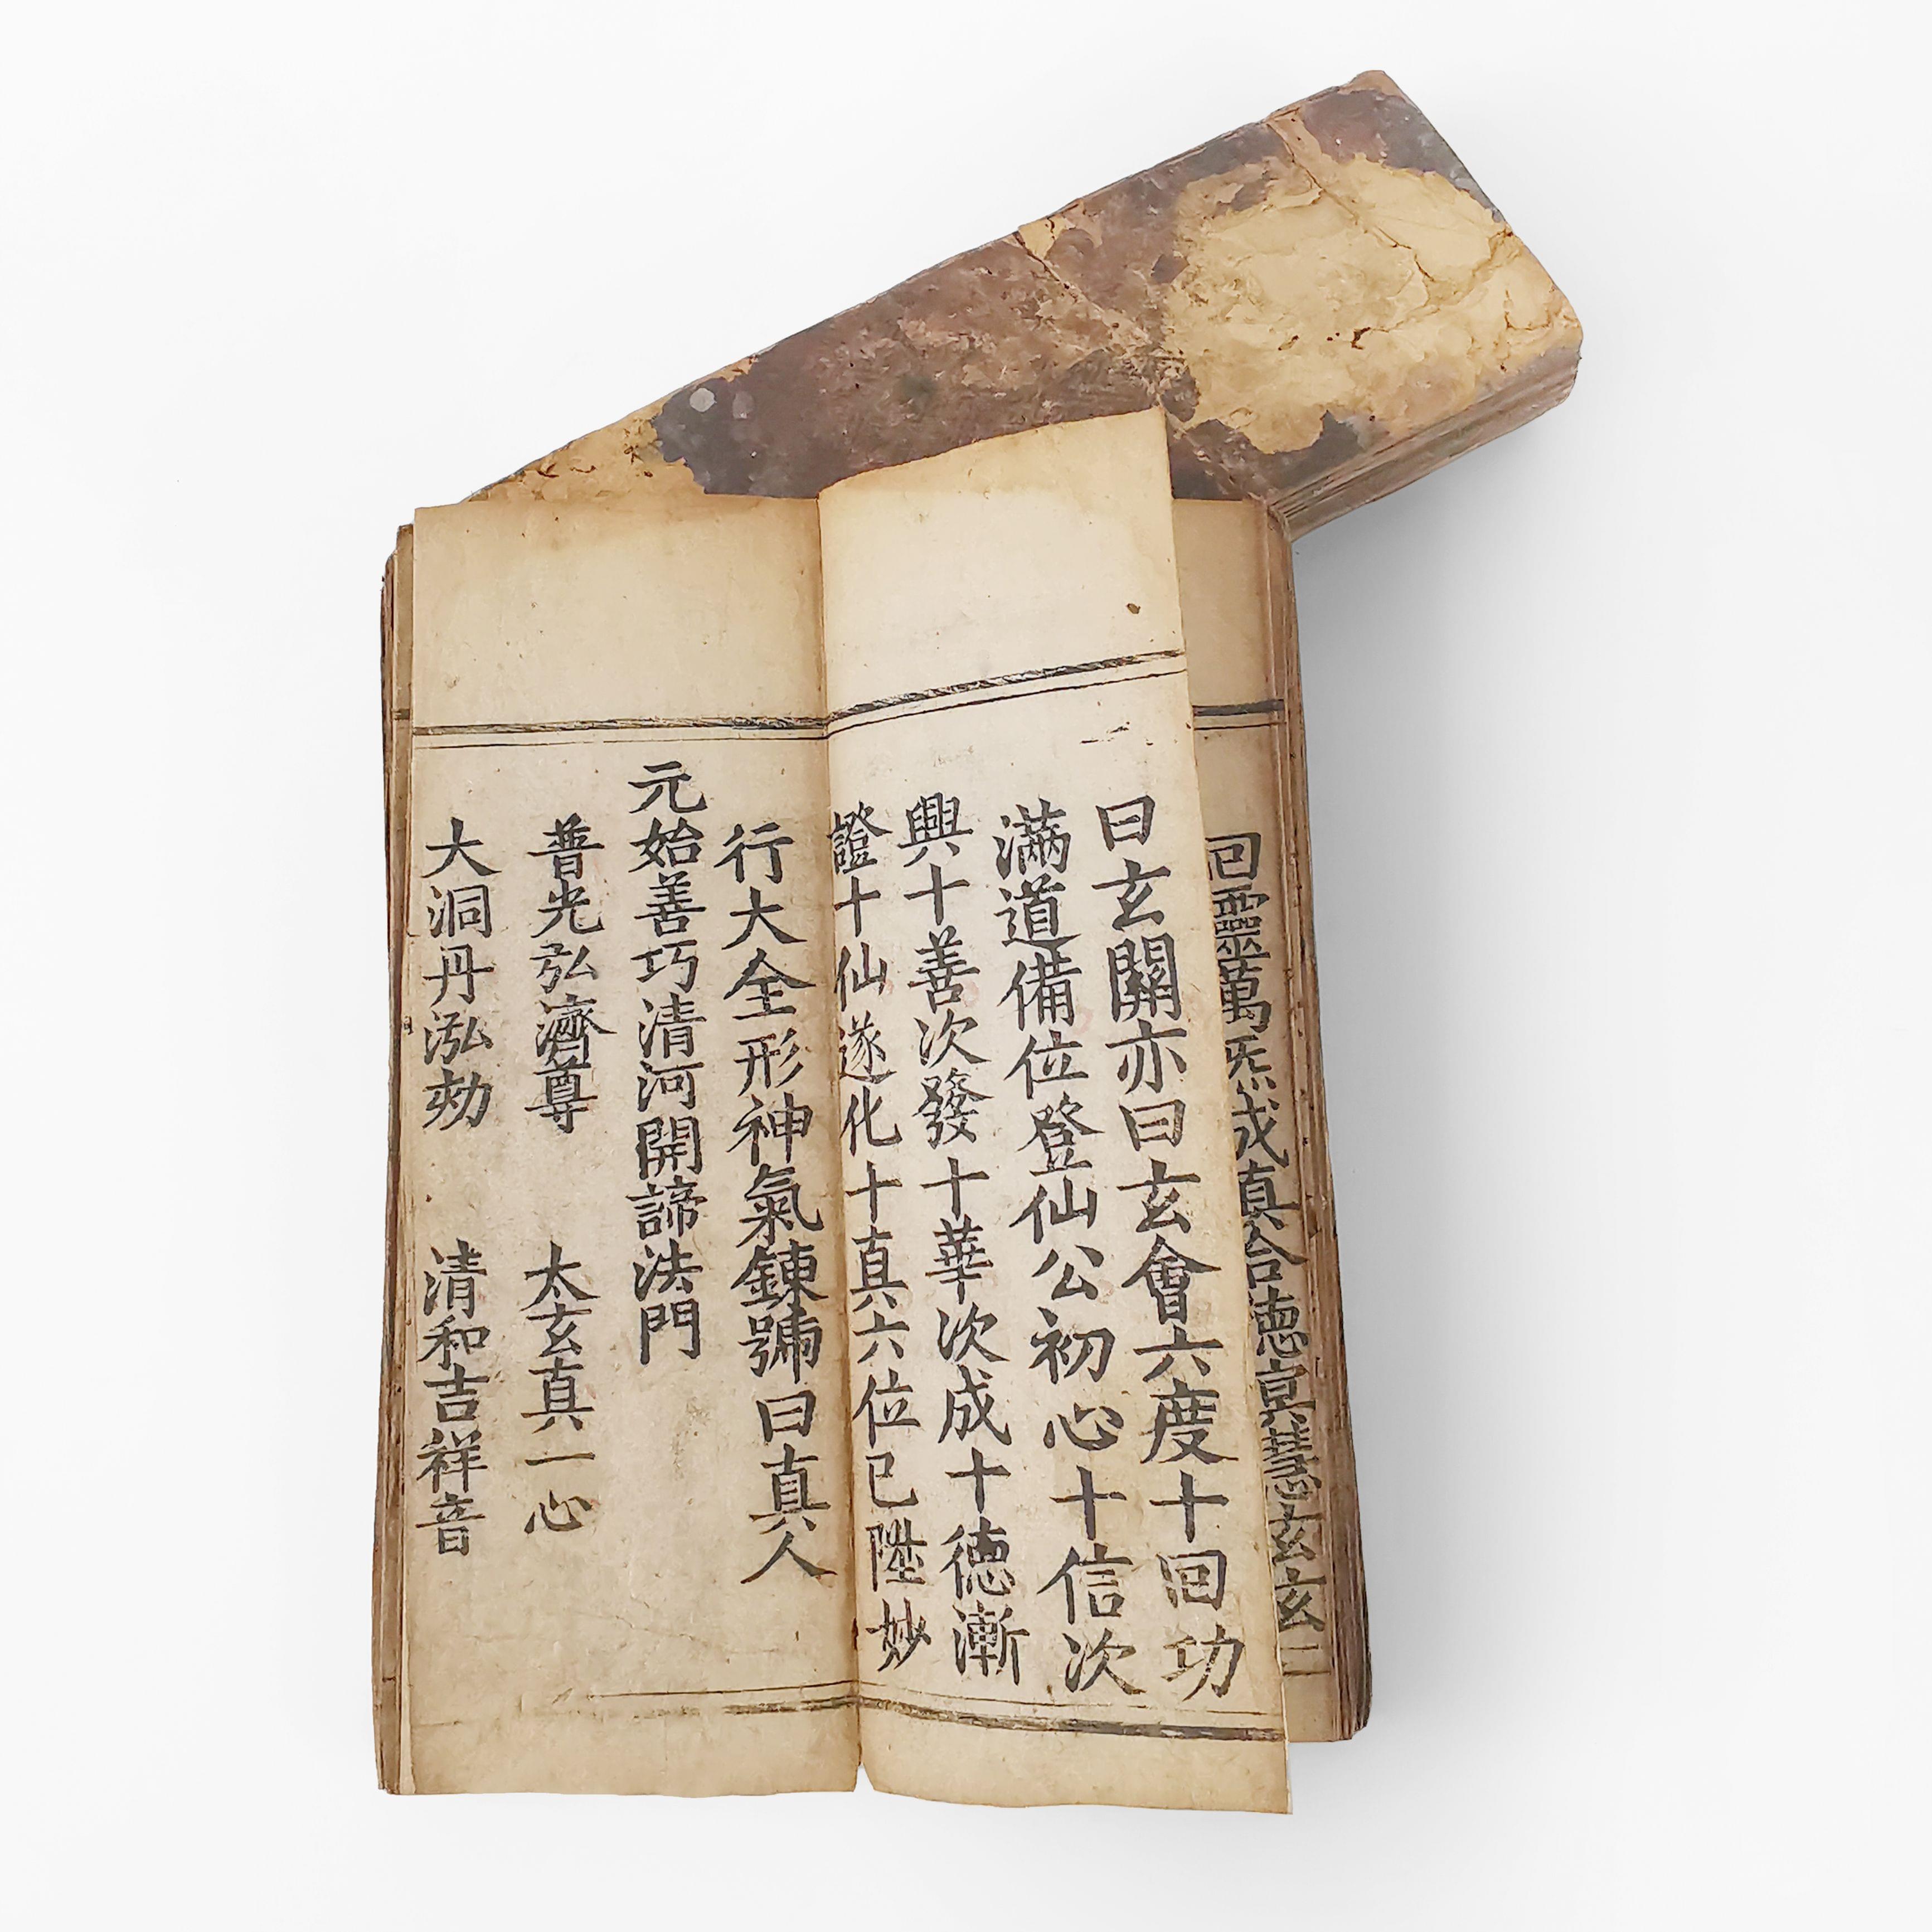 回靈萬炁成真合德真慧玄玄
曰玄關亦曰玄會六度十回功
滿道備位登仙公初心十信次
興十善次發十華次成十德漸
證十仙遂化十真六位已陞妙
行大全形神氣鍊號曰真人
元始善巧清河開諦法門
普光弘濟尊 太玄真一心
大洞丹泓効 清和吉祥音